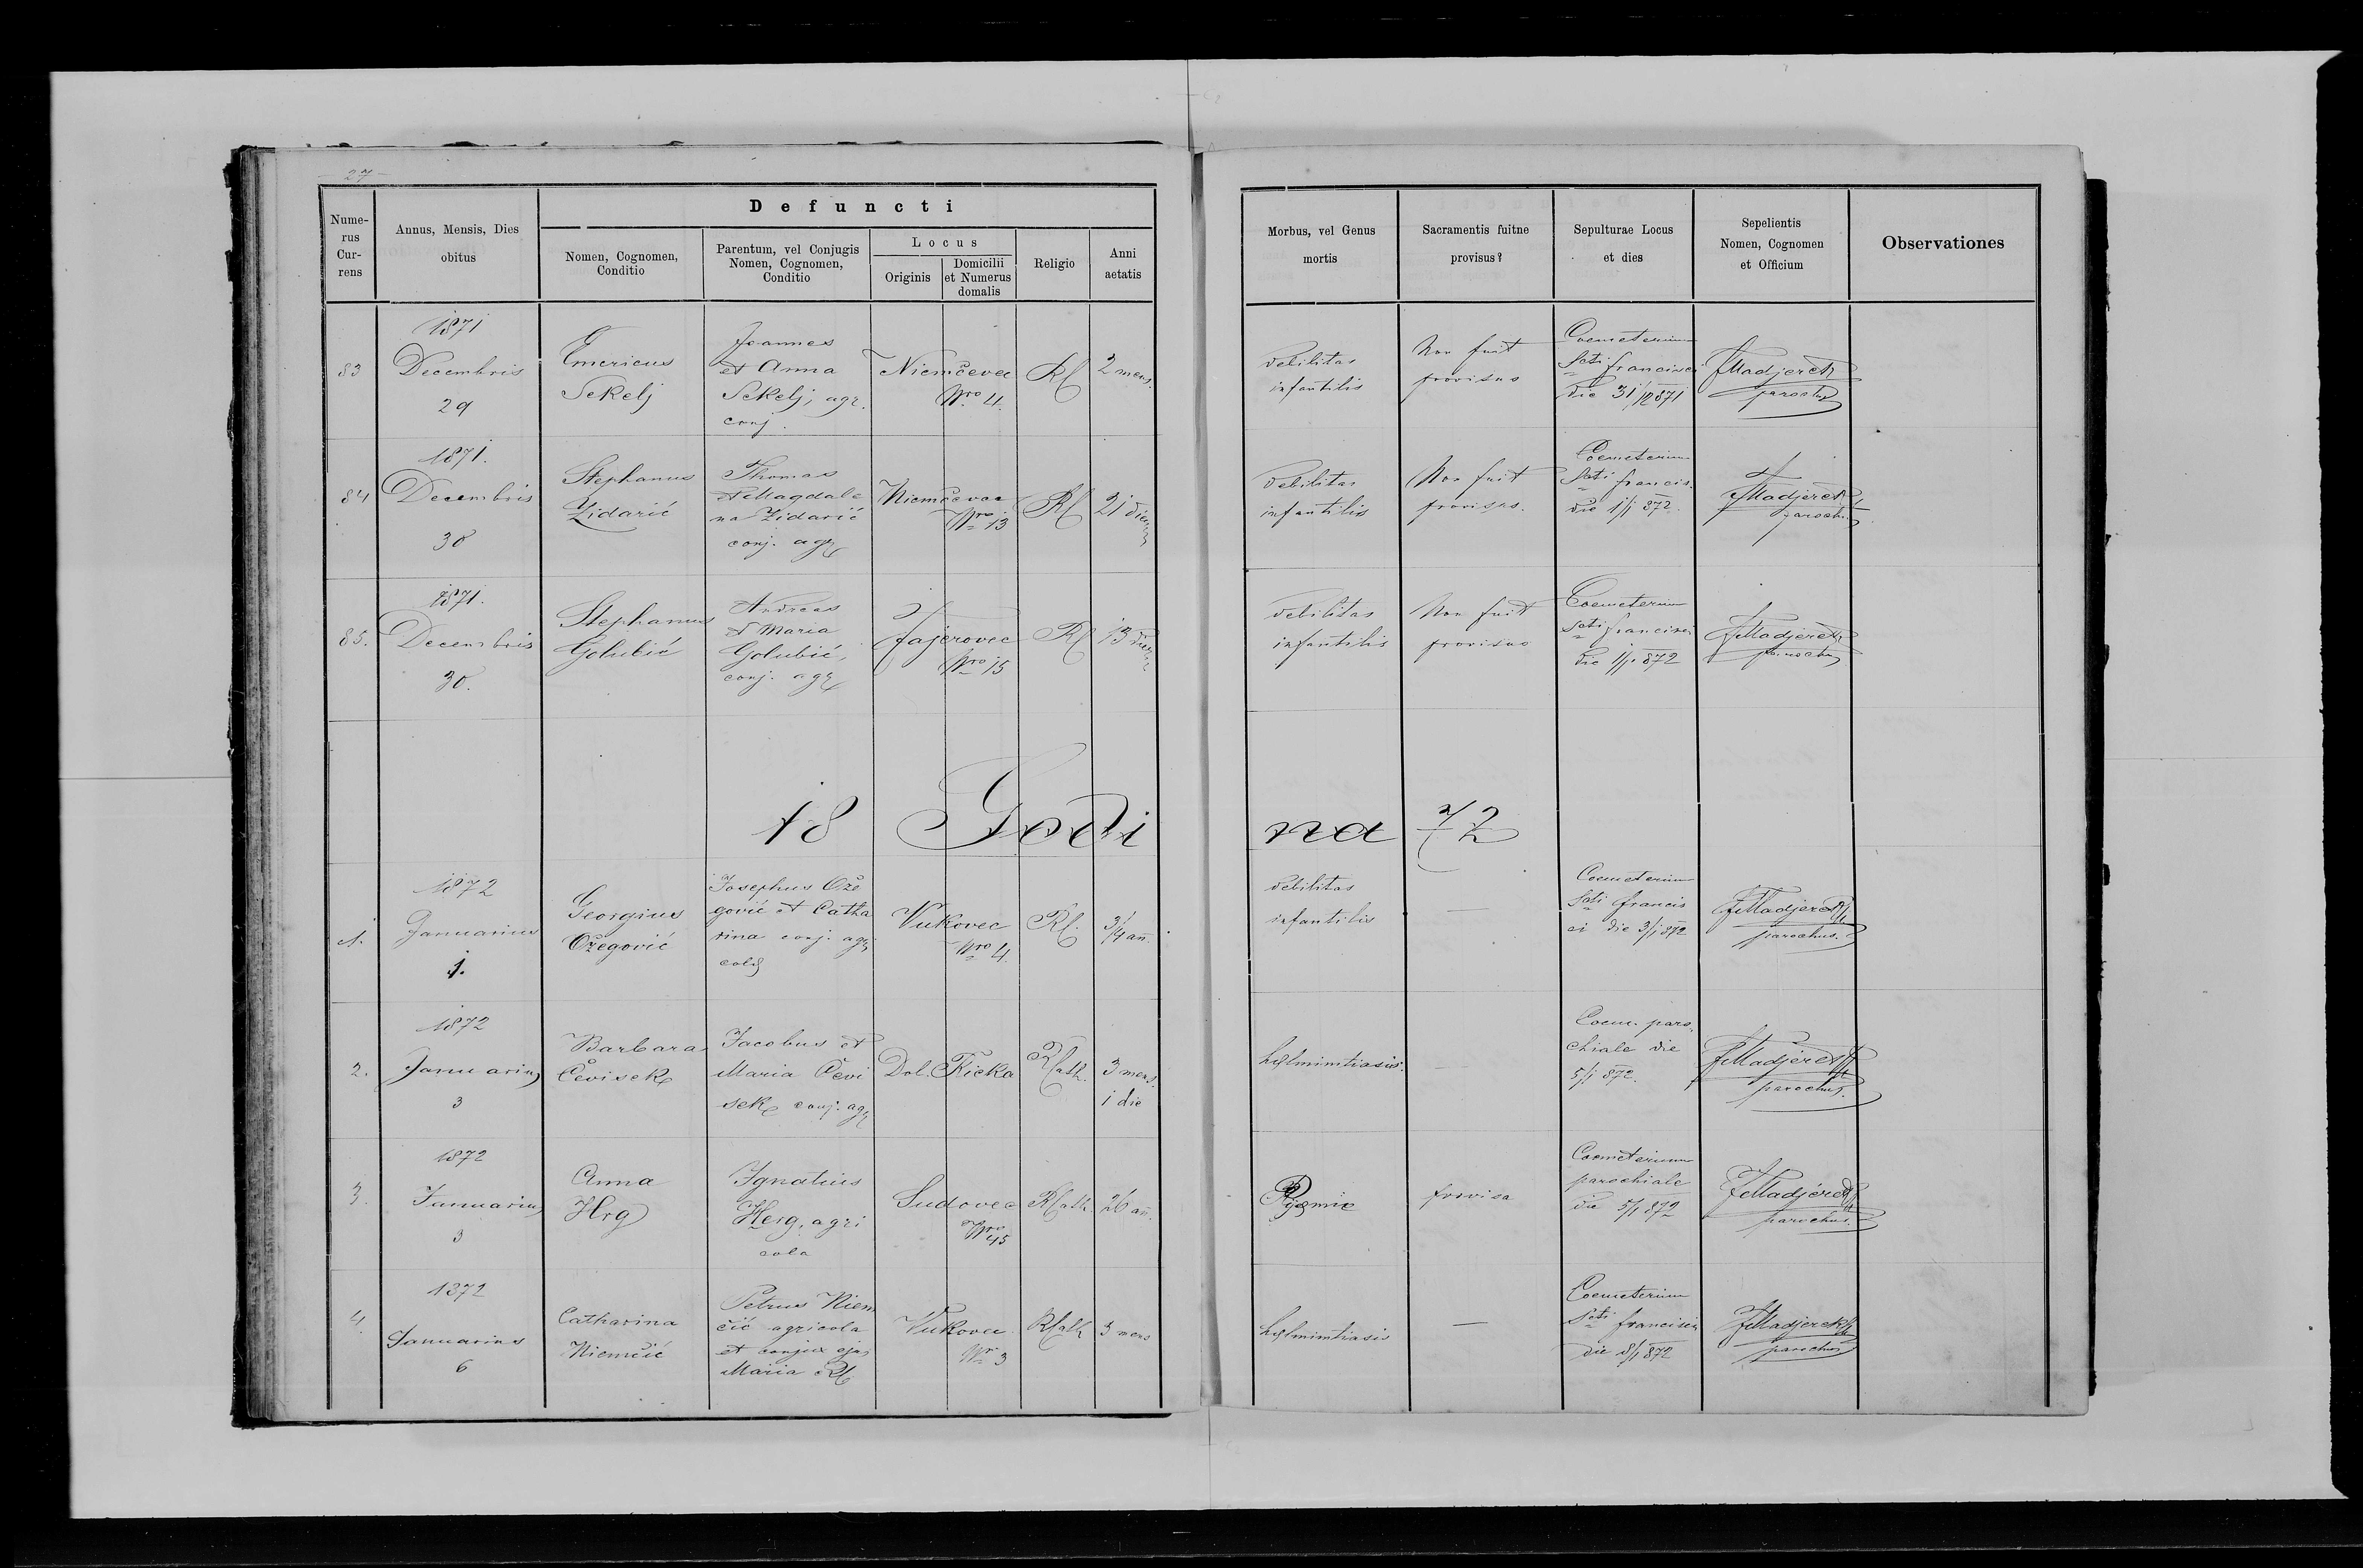 27
Defuncti
Nume-
rus
Cur-
rens
Annus, Mensis, Dies
obitus
Nomen, Cognomen,
Conditio
Parentum, vel Conjugis
Nomen, Cognomen,
Conditio
Locus
Originis
Domicilii
et Numerus
domalis
Religio
Anni
aetatis
Morbus, vel Genus
mortis
Sacramentis fuitne
provisus?
Sepulturae Locus
et dies
Sepelientis
Nomen, Cognomen
et Officium
Observationes
83
1871
Decembris
29
Emericus
Sekelj
Joannes
et Anna
Sekelj, agr.
conj.
Niemčevec
Nro 4.
RC
2 mens.
debilitas
infantilis
Non fuit
provisus
Coemeterium
Scti francisci
die 31/12 871
FMadjerek
parochus
84
1871.
Decembris
30
Stephanus
Zidarić
Thomas
et Magdale
na Zidarić
conj. agr
Niemčevec
Nro 13
RC
21 dierum
Debilitas
infantilis
Non fuit
provisus.
Coemeterium
Scti francis.
die 1/1 872.
FMadjerek
parochus
85.
1871.
Decembris
30.
Stephanus
Golubić
Andreas
et Maria
Golubić,
conj. agr
Fajerovec
Nro 15
RC
13 dierum
debilitas
infantilis
Non fuit
provisus
Coemeterium
Scti francisci
die 1/1. 872
FMadjerek
parochus
18 Godi na 72
1.
1872
Januarius
1.
Georgius
Ožegović
Josephus Ože
gović et Catha
rina conj. agri
colæ
Vukovec
Nro 4.
RC.
3/4 añ.
debilitas
infantilis
—
Coemeterium
Scti francis
ci die 3/1 872
FMadjerek
parochus.
2.
1872
Januarius
3
Barbara
Čevisek
Jacobus et
Maria Čevi
sek conj. agr
Dol. Rieka
RCath.
3 mens.
1 die
helmintiasis.
—
Coem. paro.
chiale die
5/1 872.
FMadjerek
parochus.
3.
1872
Januarius
3
Anna
Hrg
Ignatius
Herg, agri
cola
Sudovec
Nro 45
RCath.
26 añ.
provisa
Coemeterium
parochiale
die 5/1 872
FMadjerek
parochus.
4.
1872
Januarius
6
Catharina
Niemčić
Petrus Niem
čić agricola
et conjux ejus
Maria RC
Vukovec
Nr 3
RCath
3 mens
helmintiasis
—
Coemeterium
Scti francisci
die 8/1 872
FMadjerek
parochus